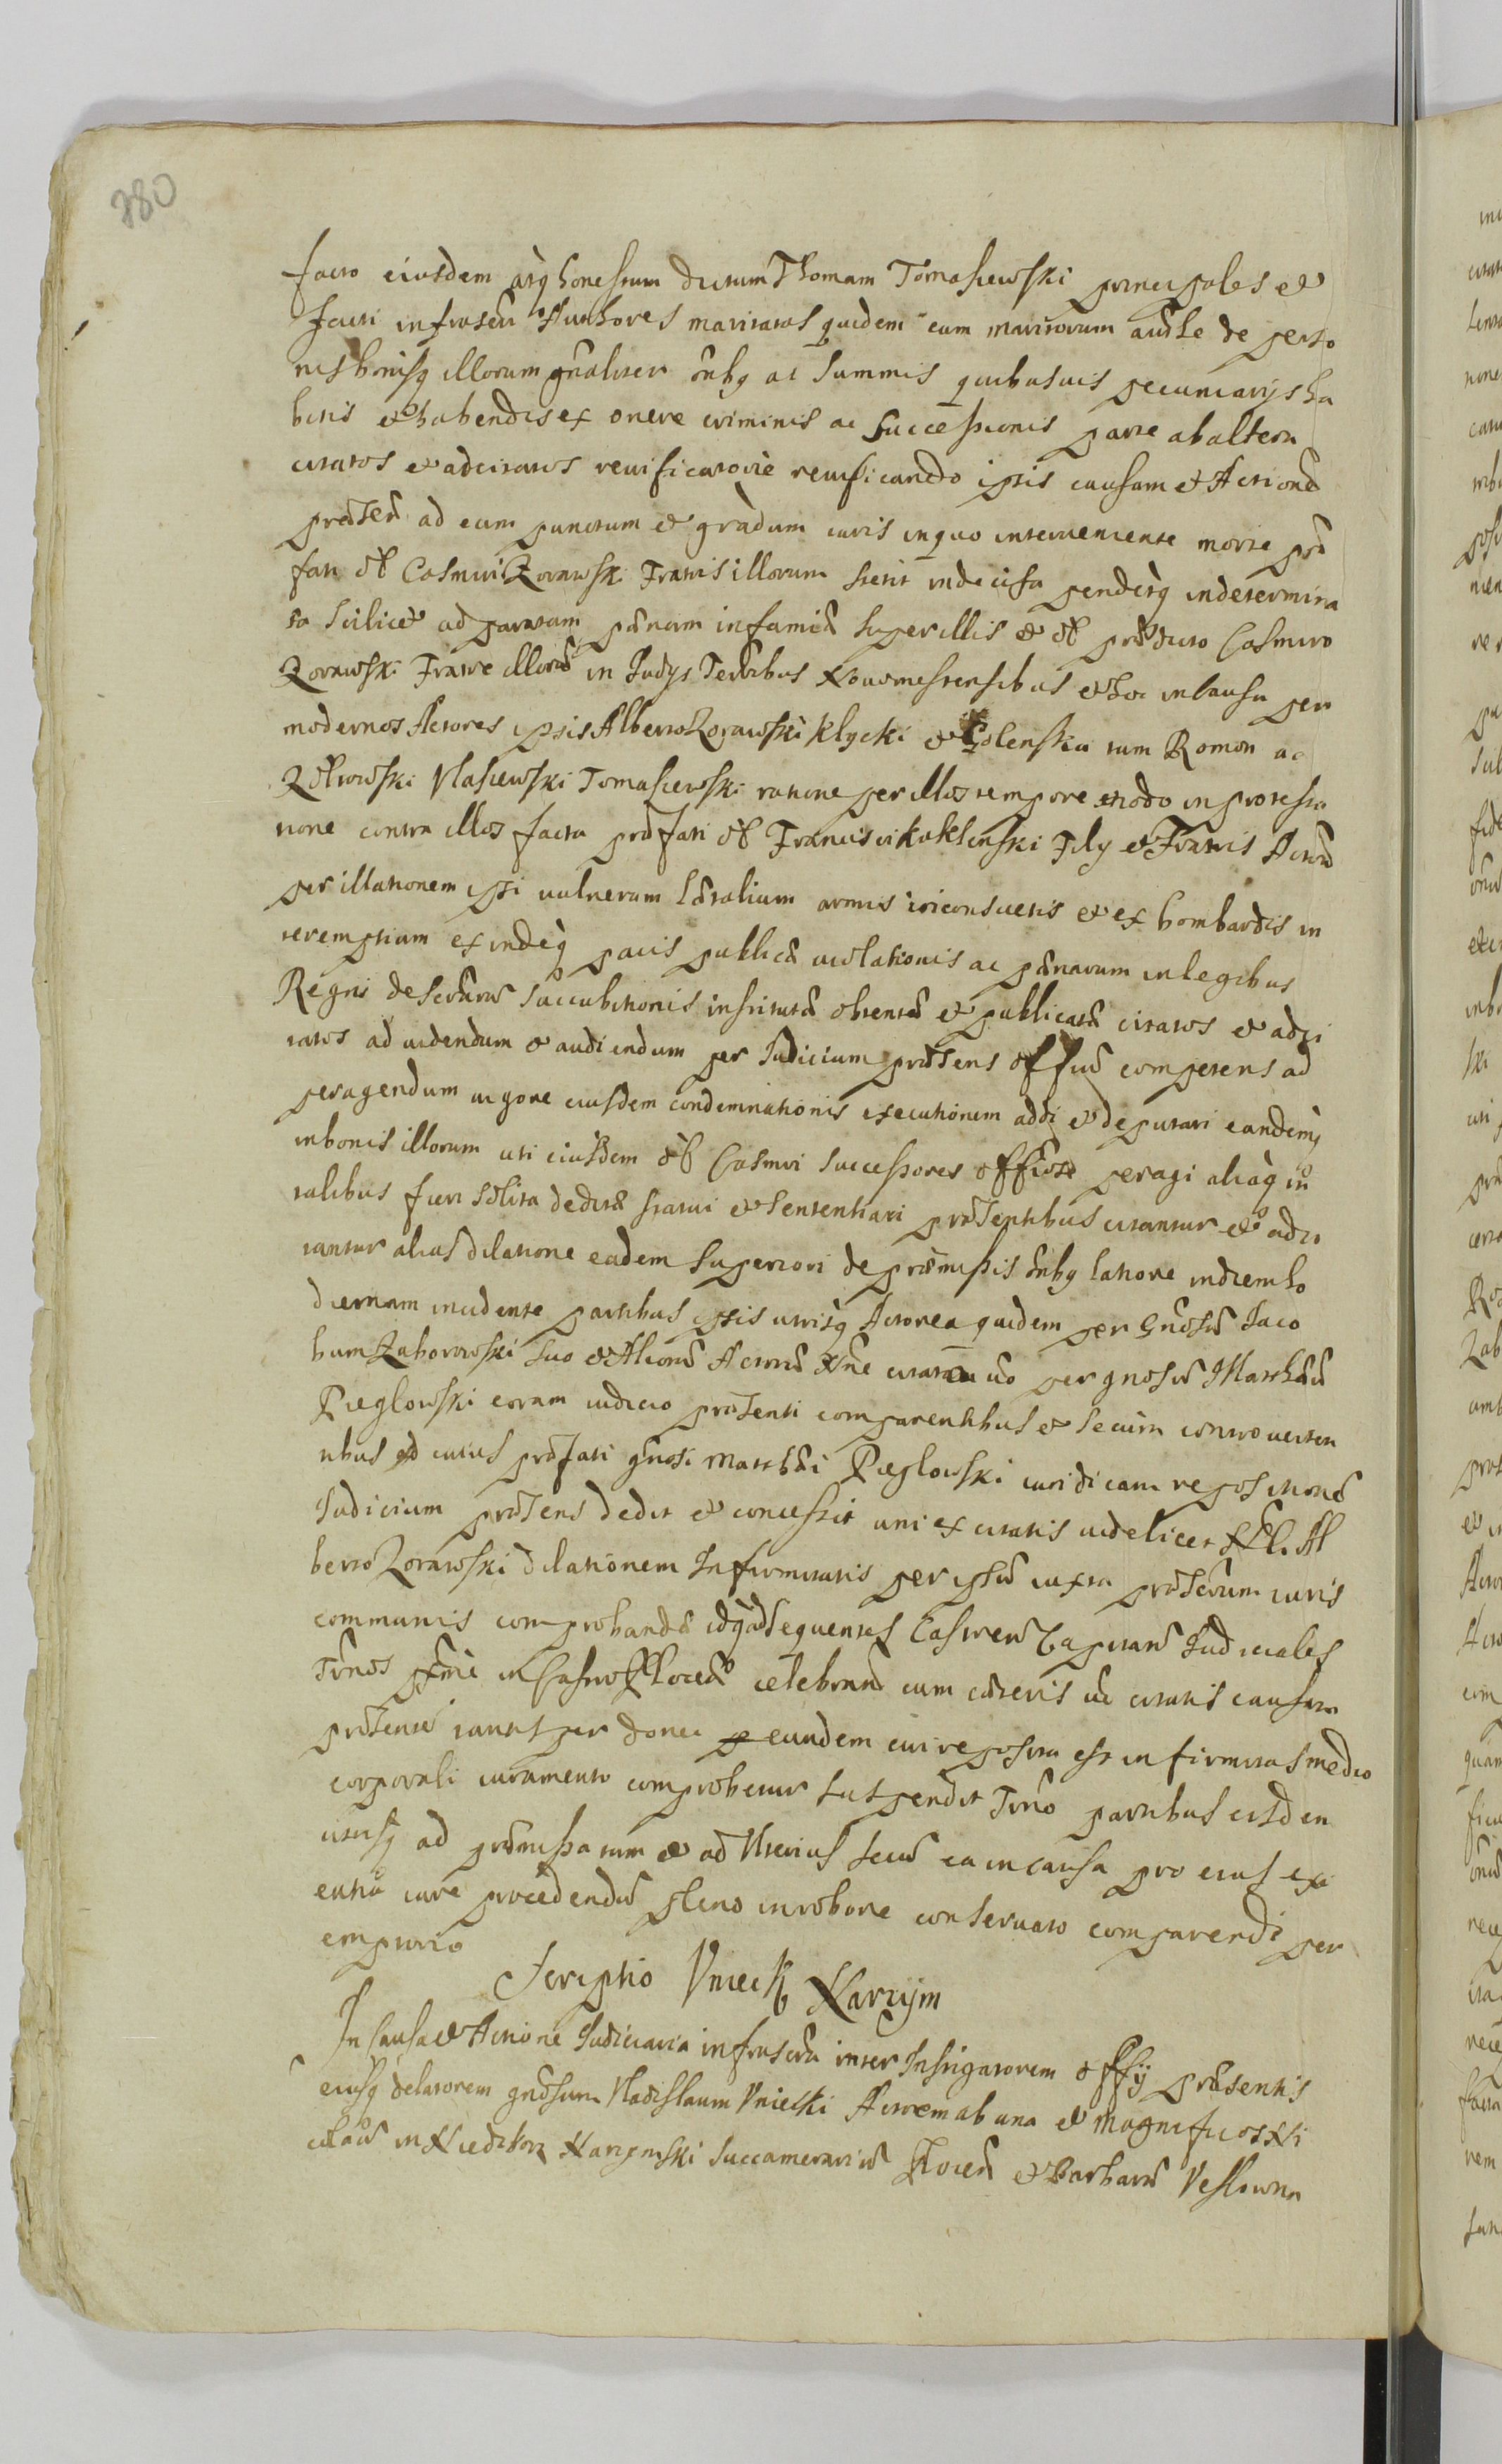 780
facto eiusdem atq honestum dictum Thomam Tomaszewski principales et
facti infrascri Authores maritatas quidem cum maritorum aũthe de perso
nis bonisq illorum gñaliter õnibq ac summis quibusuis pecuniarijs ha
bitis et habendis ex onere criminis ac successionis parte ab altera
citatos et adcitatos reuificatorie reuificando ipsis causam et Actionẽ
prãsẽn ad eum punctum et gradum iuris in quo interueniente morte prã
fati ol Casmiri Zorawski Fratris illorum stetit indecisa penditq indetermina
ta scilicet ad paratam pãnam infamiã super illis et ol prãdicto Casmiro
Zorawski Fratre illorũ in Judijs Terribus Nouomestensibus et hoc in causa per
modernos Actores ipsis Alberto Zorawski Klycki et Golenskiu tum Romon ac
Zolwowski Vlasiewski Tomasiewski ratione per illos tempore et modo in protesta
tione contra illos facta prãfati ol Francisci Koklinski Filij et Fratris Actorũ
per illationem ipsi uulnerum lãtalium armis inconsuetis et ex bombardis in
teremptium exindeq pacis publicã uiolationis ac pãnarum in legibus
Regni descriptarũ succubitionis institutã obtentã et publicatã citatos et adci
tatos ad uidendum et audiendum per Judicium prãsens offiũ competens ad
peragendum uigore eiusdem condemnationis executionem addi et deputari eandemq
in bonis illorum uti eiusdem ol Casmiri successores officiose peragi aliaq in
talibus fieri solita dedita statui et sententiari prãsentibus citantur et adci
tantur alias dilatione eadem superiori de prãmissis õnibq latiore in diem ho
diernam incidente partibus ipsis utrisq Actorea quidem per Gnosũ Jaco
bum Zaborowski suo et Aliorũ Actorũ Nne citata uo per gnosũ Matthãũ
Pieglowski coram iudicio prãsenti comparentibus et secum controuerten
tibus ad cuius prãfati gnosi Matthãi Pieglowski iuridicam repositionẽ
Judicium prãsens dedit et concessit uni ex citatis uidelicet Nbl. Al
berto Zorawski dilationem Infirmitatis per ipsũ iuxta prãscriptum iuris
communis comprobandã idq ad sequentes Castren Capitan Judiciales
Trnos pxme in Castro Plocen celebrand cum cãteris uo citatis causam
prãsentẽ tantisper donec eundem cui reposita est infirmitas medio
corporali iuramento comprobetur suspendit Trno partibus eisdem
utrisq ad prãmissa tum et ad Vlterius secũ ea in causa pro eius exi
entia iure procedendũ pleno in robore conseruato comparendi per
emptorio
Scriptio Vniecki Narzijm
In causa et Actione Judiciaria infrascra inter Instigatorem offij prãsentis
eiusq delatorem gnosum Vladislaum Vniecki Actorem ab una et Magnificos Ni
colaũ in Niedzborz Narzimski Succamerariũ Plocen et Barbarã Vesslowna